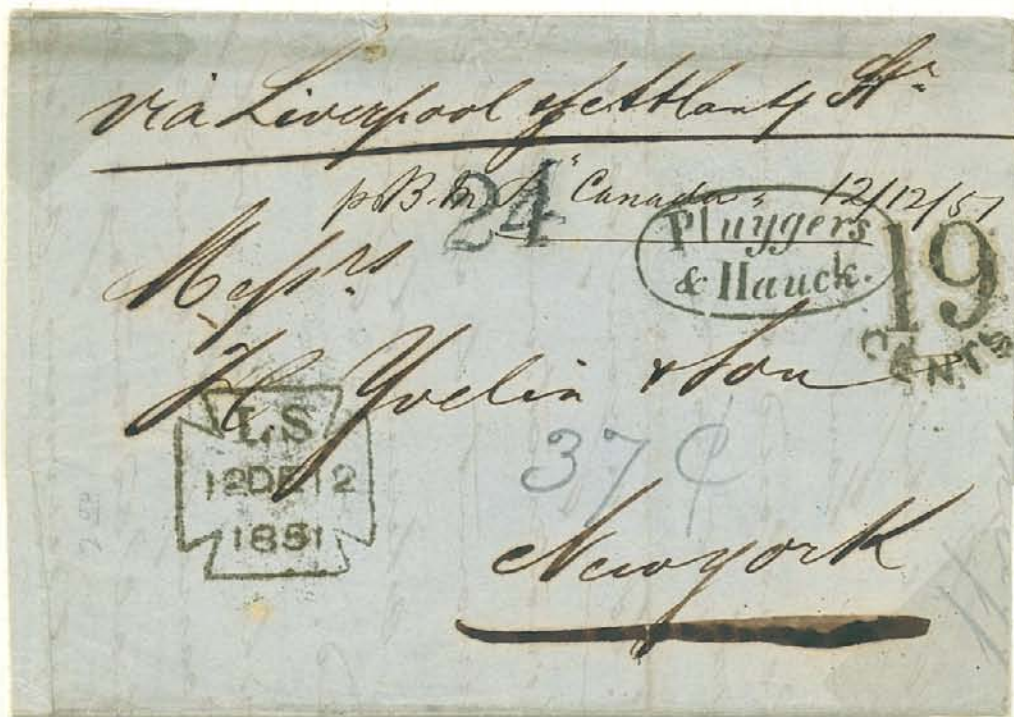 via Liverpool Atlantic Str
p B. M. S. "Canada" 12/12/51
24
Pluygers
& Hauck.
19
CENTS
Messrs
H C Yvelin & Son
L.S
12DE12
1851
37 ¢
Newyork